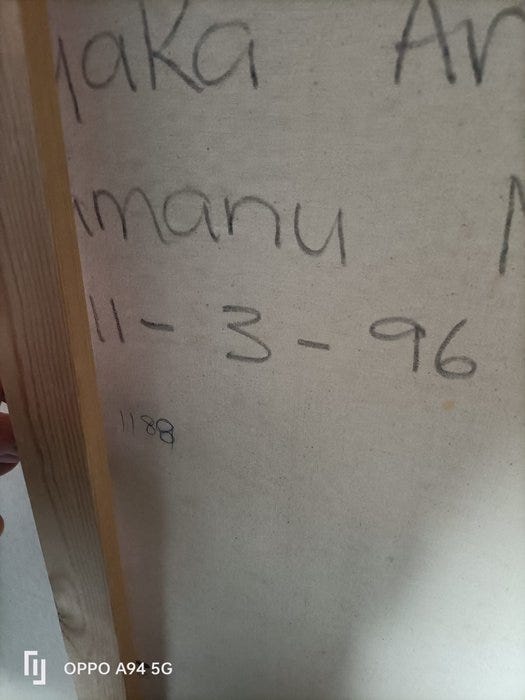 yaka Ar
manu
11 - 3 - 96
1188
OPPO A94 5G